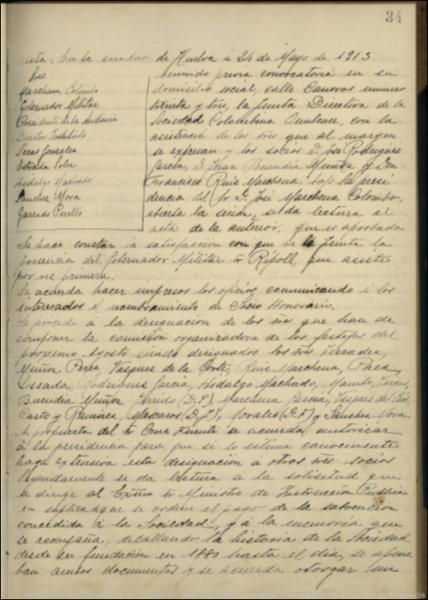 34
Acta: En la ciudad de Huelva á 24 de Mayo de 1913
Sres
Marchena Colombo
Gobernador Militar
Presidente de la Audiencia
Director Instituto
Seras Gonzalez
Estrada Soler
Hidalgo Machado
Sanchez Mora
Garrido Perelló
reunido previa convocatoria en su
domicilio social, calle Canovas numero
treinta y tres, la Junta Directiva de la
Sociedad Colombina Onubense, con la
asistencia de los sres que al margen
se expresan y los socios D. José Rodriguez
Garcia, D. Juan Buendia Muñoz y Don
Francisco Ruiz Marchena, bajo la presi
dencia del Sr. D. José Marchena Colombo,
abierta la sesión, es dada lectura al
acta de la anterior, que es aprobada
Se hace constar la satisfacción con que ve la Junta la
presencia del Gobernador Militar Sr Ripoll, que asiste
por vez primera.
Se acuerda hacer impresos los oficios comunicando á los
interesados el nombramiento de Socio Honorario.
Se procede á la designación de los sres que han de
componer la comisión organizadora de los festejos del
proximo Agosto siendo designados los sres Terrades,
Muñoz Perez, Vazquez de la Corte, Ruiz Marchena, Plaza
Rodriguez Garcia, Hidalgo Machado,
Buendia Muñoz, Garrido (D.P.), Marchena Garcia, Vazquez
Castro y Ramirez, Mascaros (D.J.), Morales (D.F) y Sanchez Mora.
A propuesta del Sr Cruz Fuentes se acuerda autorizar
á la presidencia para que si lo estima conveniente
haga extensiva esta designación á otros sres socios
Seguidamente se da lectura á la solicitud que
se dirige al Exmo Sr Ministro de Instrucción Publica
en suplica que se ordene el pago de la subvención
concedida á la Sociedad, y á la memoria que
se acompaña, detallando la historia de la Sociedad
desde su fundación en 1880 hasta el dia, se aprue
ban ambos documentos y se acuerda otorgar un